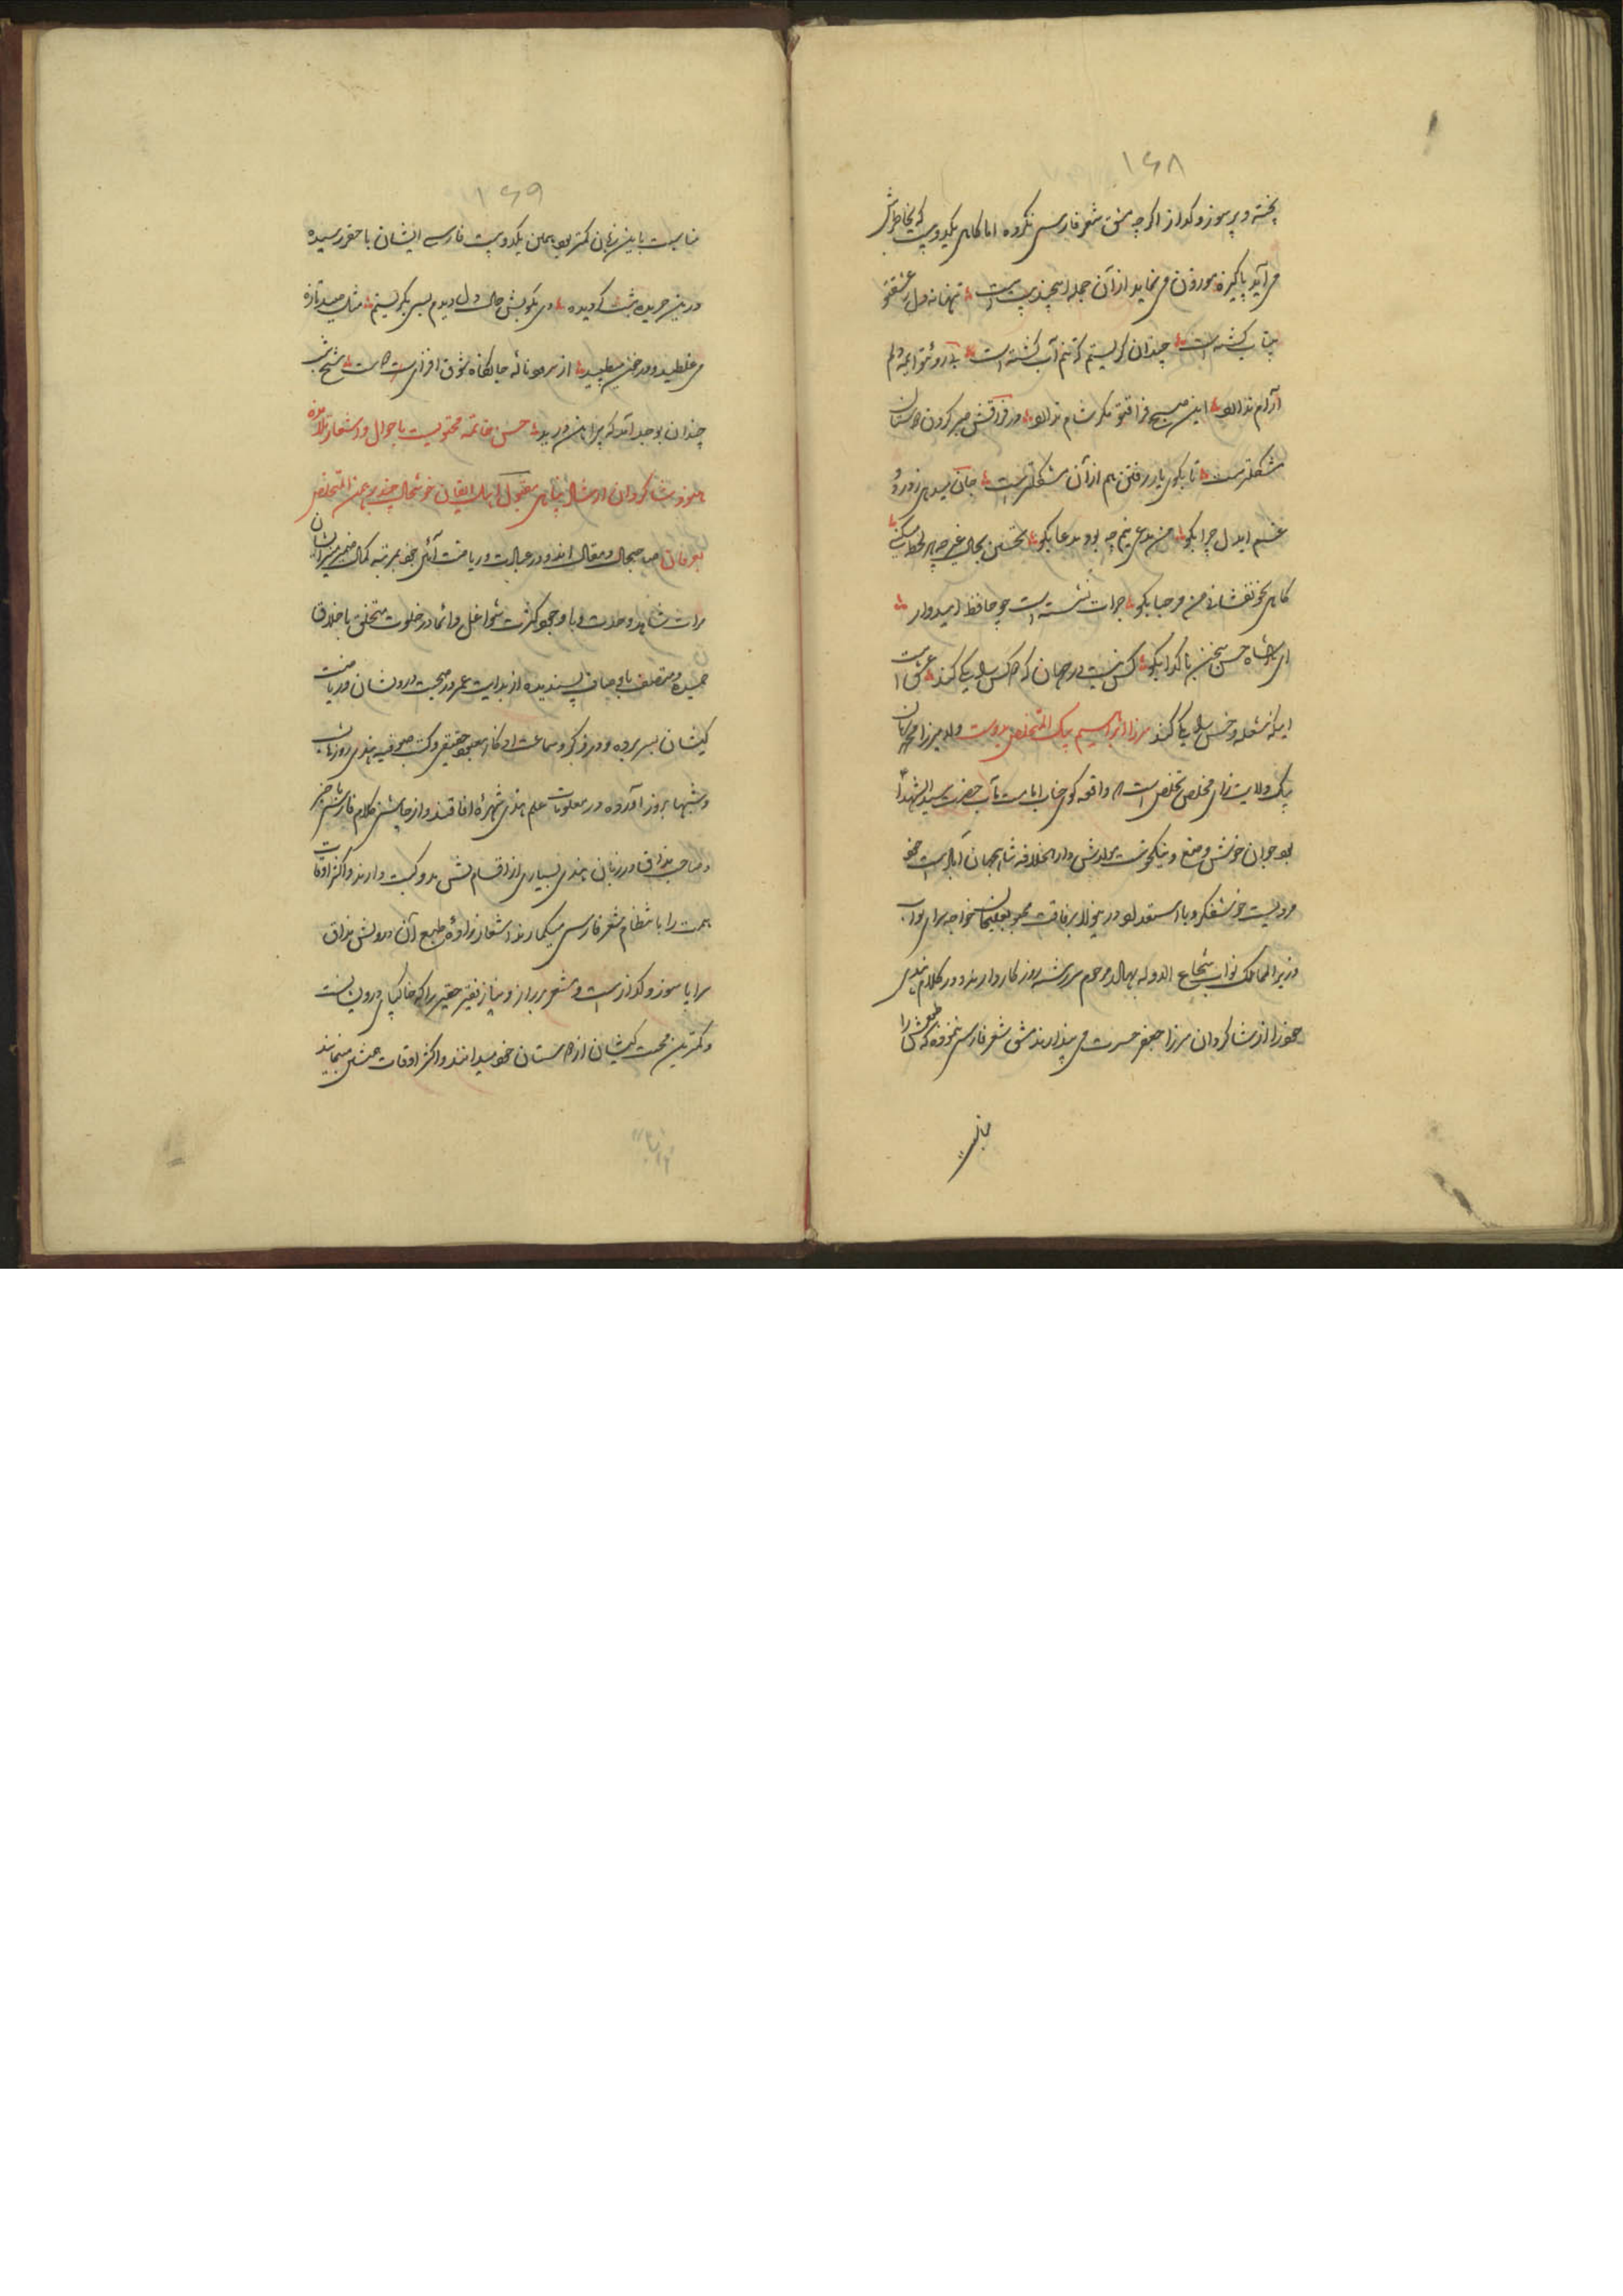 ۱۶۸
پخته و پر سوز و کداز اکرچه مشق شعر فارسی نکرده اما کاهی یکدو بیت که بخاطرش
می آید پاکیزه و موزون می نماید از آن جمله اینچند بیت است تنها نه دل ز عشقتو
بیتاب کشته است چندان کریستم که تنم آب کشته است بی روئتو ایمه دلم
آرام ندارد این صبح فراقتو مکر شام ندارد در فراقش صبر کردن
مشکلترست تا بکوی یار رفتن هم از آن مشکلترست جان میدهی ز درد و
غم ایدل چرا بکو من مدعی نیم چه بود مدعا بکو تحسین بحال غیر چه هر لحظه میکنی
کاهی بجو نقشانی من مرحبا بکو جرات نشسته است چو حافظ امیدوار
ای شاه حسن سخن با کدا بکو کس نیست در جهان که کس یاری کند عشق است
اینکه شعله و خس یاری کند مرزا ابراهیم بیک المتخلص بدوست ولد میرزا محمد
بیک ولایت زای مخلص تخلص است که واقعه کوی جناب امامت مآب حضرت سید الشهدا
بود جوان خوش وضع و نیکخوست مولدش دار الخلافه شاهجهان آباد است خود
مردیست خوشفکر و با استعداد در ینولا برفاقت محبوبعلیخان خواجه سرای نواب
وزیر الممالک نواب شجاع الدوله بهادر مرحوم سررشته روزکار دارند و در کلام هندی
خود را از شاکردان مرزا جعفر حسرت می پندارند مشق شعر فارسی ننموده که طبعش را
مناسبت
۱۶۹
مناسبت باین زبان کمتر بود همین یکدو بیت فارسی ایشان باحقر رسیده
درین جریده ثبت کردیده دی بکویش حال دل دیدم بسی بکریستم مثل صید تازه
می غلطید و در خون میطپید از سرمو نائه جانکاه شوق افزای ست شیخ شب
چندان بوجد آمد که پیراهن درید حسن خاتمه محتویست باحوال و اشعار تلامذه
هنوز شاکردان ارشاد پناهی مقبول اهل ایقان خوشحال چند برهمن المتخلص
بعرفان صاحبحال و مقال اند و در عبادت و ریاضت آئین خود بمرتبه کمال ضمیر منیر ایشان
مرات شاهد وحدت و با وجود کثرت شواغل دائما در خلوت متخلق باخلاق
حمیده و متصف باوصاف پسندیده از بدایت عمر در صحبت درویشان و ریاضت
کیشان بسر برده و در ذکر و سماعت اذکار معبود حقیقی و کتب صوفیه هندی روزها بشب
و شبها بروز آورده در معلومات علم هندی شهرهٔ آفاقند و از چاشنی کلام فارسی با خبر
و صاحب مذاق در زبان هندی بسیاری از اقسام نقش دو کبت دارند و اکثر اوقات
همت را بانتظام شعر فارسی میکمارند اشعار زادهٔ طبع آن درویش مذاق
سراپا سوز و کداز ست و مشعر بر راز و نیاز فقیر حقیر را که خاکپای درویشانست
و کمترین محبت کیشان از دوستان خود میدانند و اکثر اوقات مینمایند